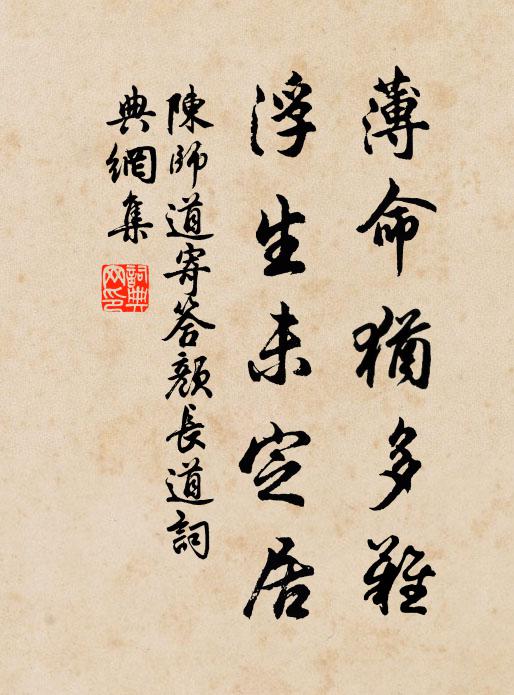 薄命猶多難
浮生未定居
陳師道寄答顏長道詞
典網集
詞典
网印